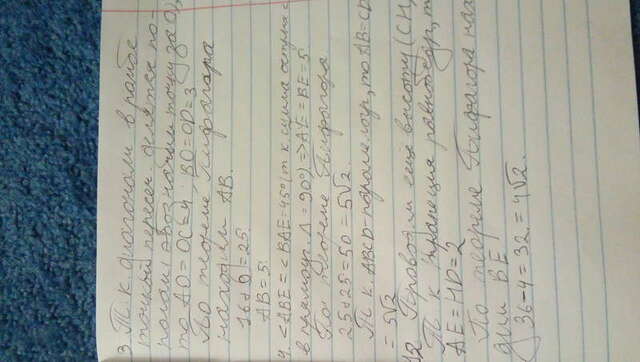 3. Т. к. диагонали в ромбе
точкой пересеч. делятся по-
полам обозначим точку за O,
то AO = OC = 4; BO = OD = 3
По теореме Пифагора
находим AB.
16 + 9 = 25
AB = 5
9. <ABE = <BAE = 45° (т к. сумма острых <
в прямоуг. Δ = 90°) => AE = BE = 5
По теореме Пифагора
25 + 25 = 50 = 5√2.
Т к. ABCD - паралелогр, то AB = CD
= 5√2
12 Проводим еще высоту (CH)
Т к трапеция равнобедр, т
AE = HD = 2
По теореме Пифагора нах
дим BE
36 - 4 = 32 = 4√2.